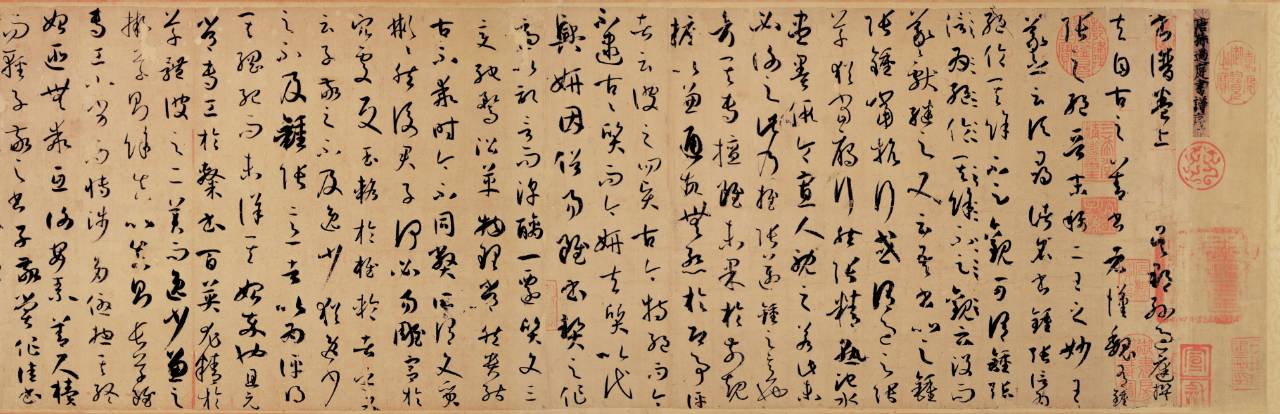 唐孫過庭書譜序
書譜卷上 吳郡孫過庭撰
夫自古之善書者漢魏有鍾
張之絕晉末稱二王之妙王
羲之云頃尋諸名書鍾張信為
絕倫其餘不足觀可謂鍾張
信為絕倫其餘不足觀云沒而
羲獻繼之又云吾書比之鍾
張鍾當抗行或謂過之張
草猶當雁行然張精熟池水
盡墨假令寡人耽之若此未
必謝之此乃推張邁鍾之意也
考其專擅雖未果於前規
摭以兼通故無慚於即事評
者云彼之四賢古今特絕而今
不逮古古質而今妍夫質以代
興妍因俗易雖書契之作
適以記言而淳醨一遷質文三
變馳騖沿革物理常然貴能
古不乖時今不同弊所謂文質
彬彬然後君子何必易雕宮於
穴處反玉輅於椎輪者乎又
云子敬之不及逸少猶逸少
之不及鍾張意者以為評得
其綱紀而未詳其始卒也且元
常專工於隸書百英尤精於
草體彼之二美而逸少兼之
擬草則餘真比真則長草雖
專工小劣而博涉多優摠其終
始匪無乖互謝安素善尺牘
而輕子敬之書子敬嘗作佳書